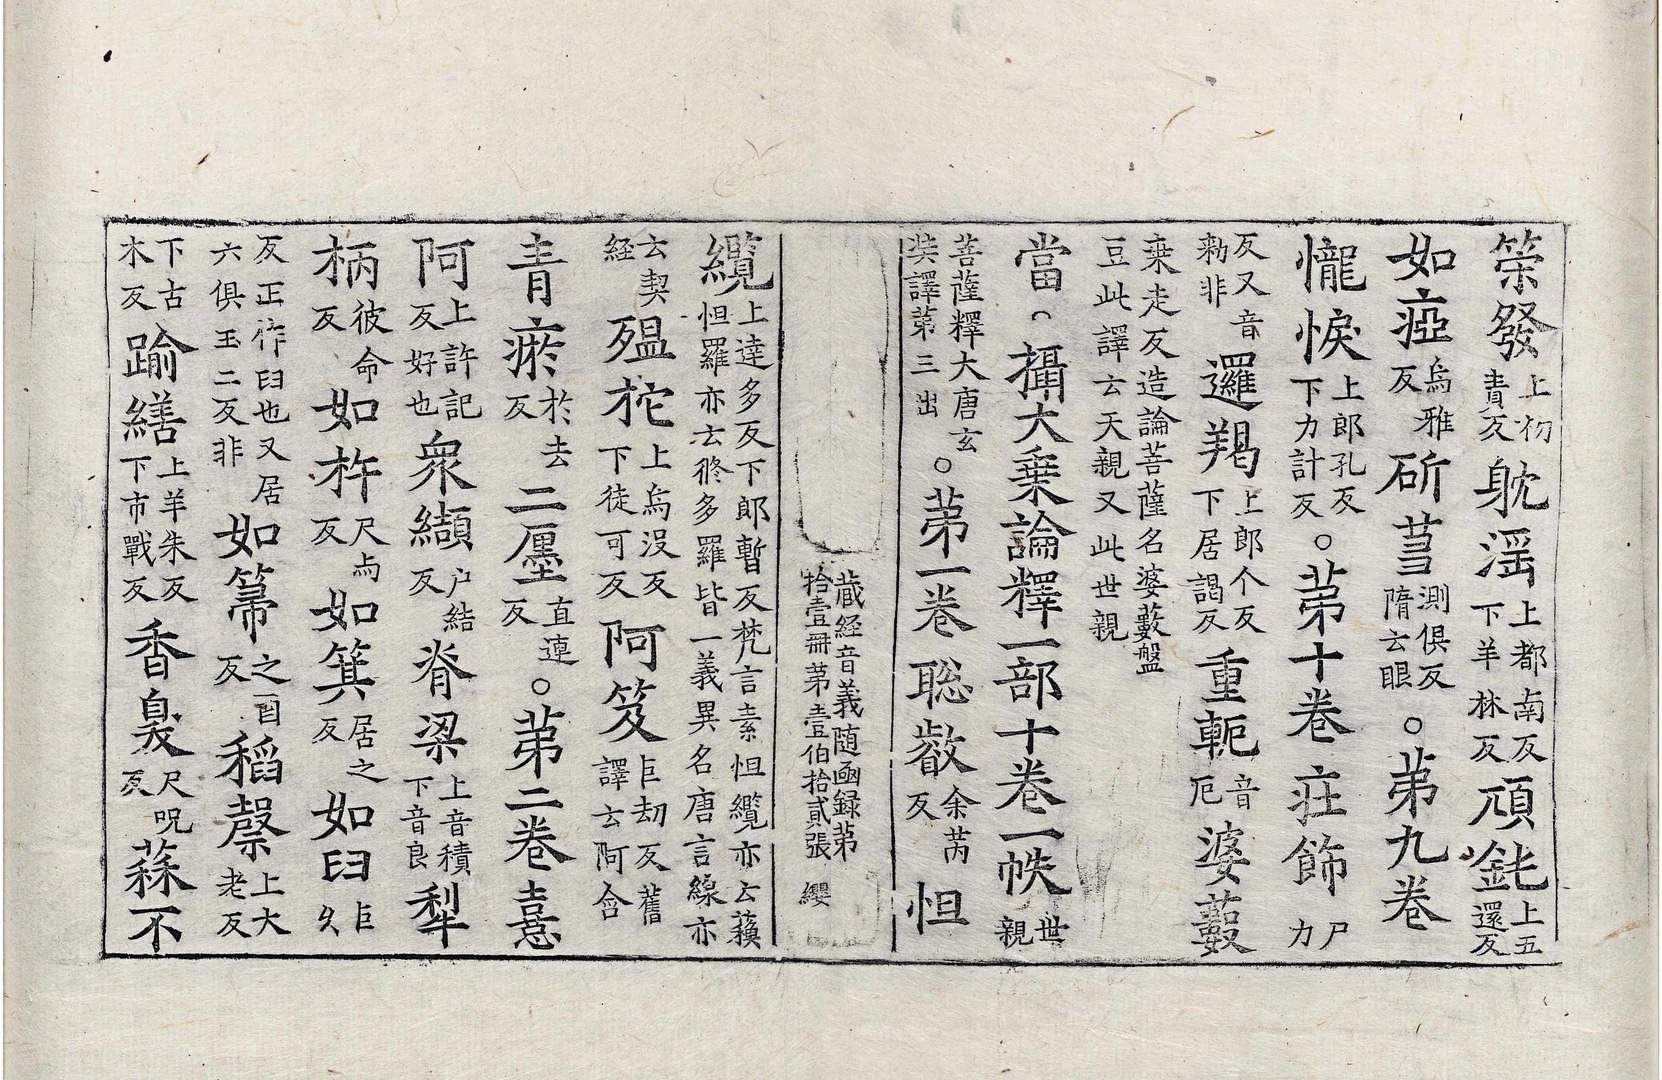 䇿發上初責反躭滛上都南反下羊林反頑鈍上五還反
如瘂烏雅反斫蒭測俱反隋云眼。苐九卷
㦨悷上郎孔反下力計反。苐十卷莊飾尸力
反又音勑非邏羯上郎个反下居謁反重軛音厄婆藪
桒走反造論菩薩名婆藪盤豆此譯云天親又此世親
當。攝大乗論釋一部十卷一帙世親
菩薩釋大唐玄奘譯苐三出。苐一卷聡叡余芮反怛
藏經音義随凾録苐拾壹冊苐壹伯拾貳張 纓
纜上逹多反下郎暫反梵言素怛纜亦云蘓怛羅亦云修多羅皆一義異名唐言線亦
云契経殟柁上烏沒反下徒可反阿笈巨劫反舊譯云阿含
青瘀於去反二㕓直連反。苐二卷憙
阿上許記反好也衆纈戶結反脊梁上音積下音良犁
柄彼命反如杵尺与反如箕居之反如臼巨久
反正作臼也又居六俱玉二反非如箒之酉反稻䕩上大老反
下古木反踰繕上羊朱反下市戰反香㚖尺呪反蘇不